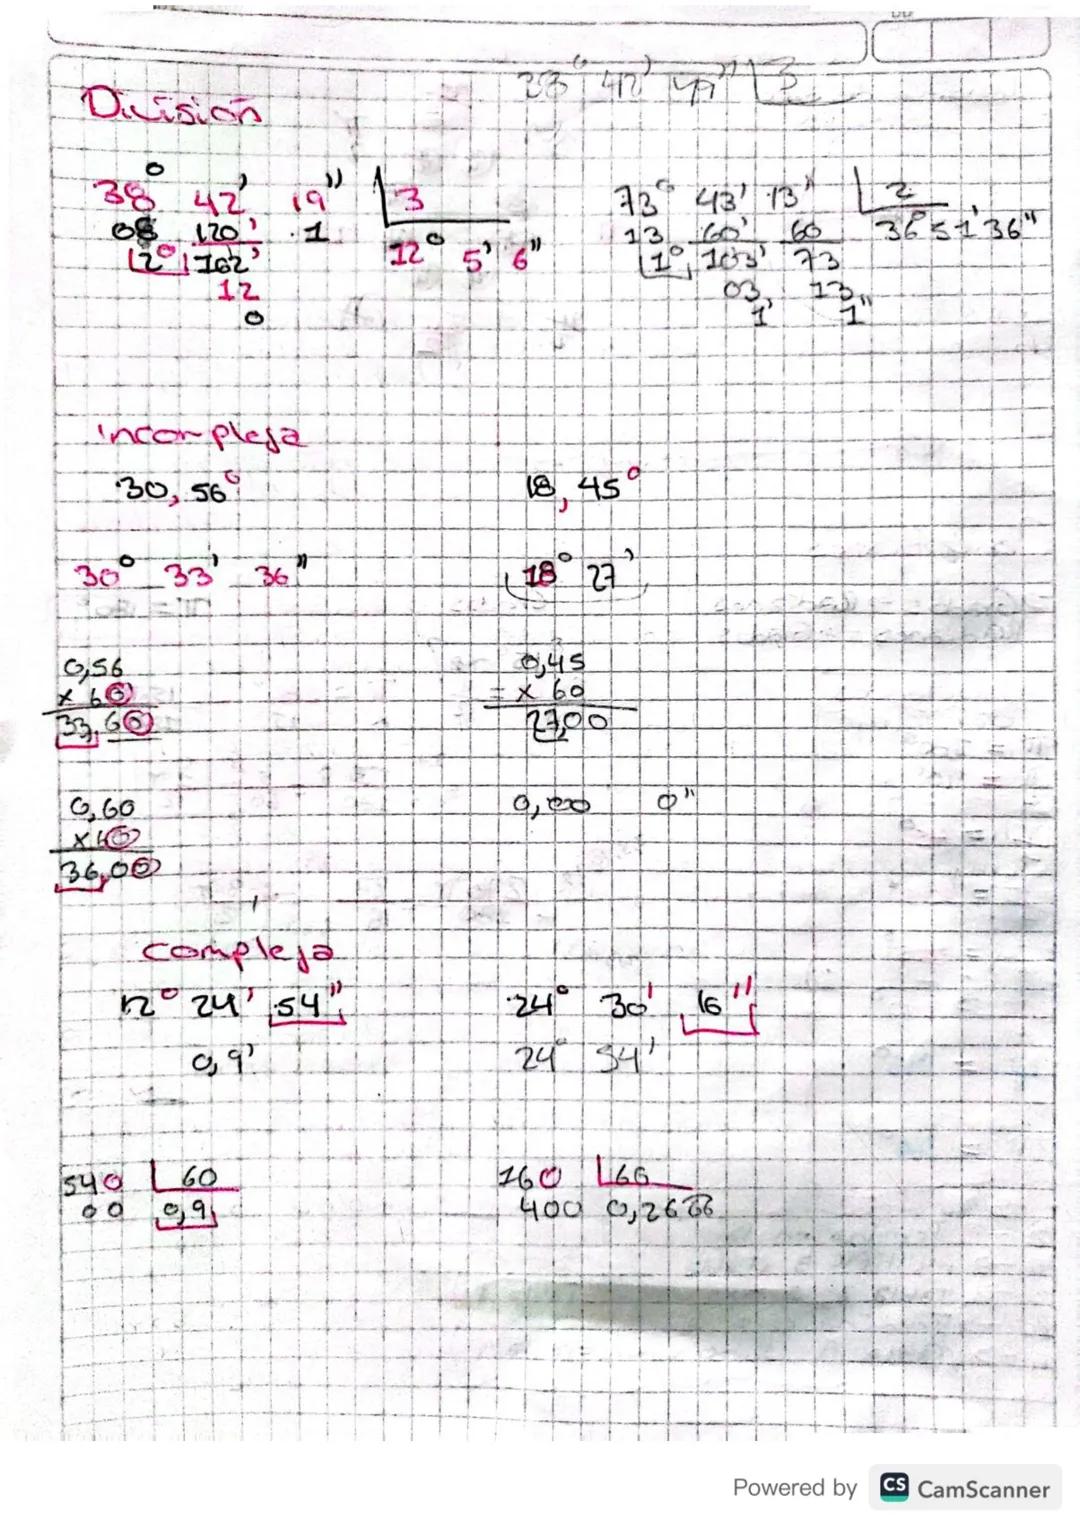 28° 42' 49" 3
División
38° 42' 19" 3
08 120' 1 12° 5' 6"
2° 162'
12
0
73° 43' 13" 2
13 60' 60 36° 51' 36"
1° 103' 73
03, 13,
1' 1"
incompleja
30,56° 18,45°
30° 33' 36" 18° 27'
0,56 0,45
x 60 = x 60
33,60 27,00
0,60 0,00 0"
x60
36,00
compleja
12° 24' 54" 24° 30' 16"
0,9' 24° 54'
540 60 160 60
00 0,9 400 0,2666
Powered by CS CamScanner